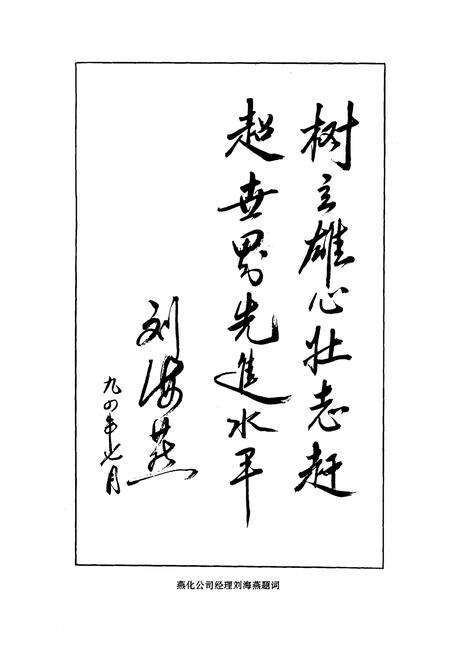 树立雄心壮志赶
超世界先進水平
刘海燕
九四年七月
燕化公司经理刘海燕题词